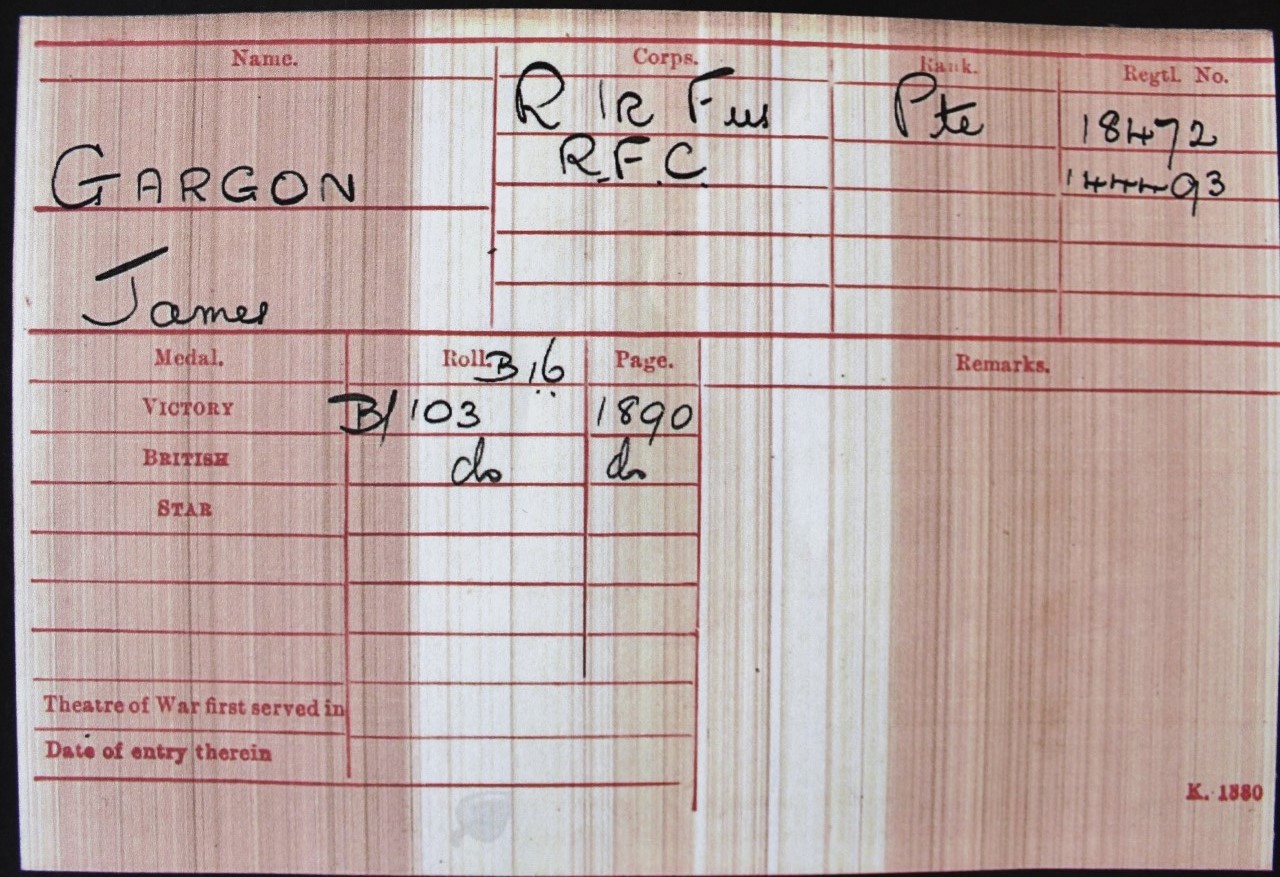 Name. Corps. Rank. Regtl. No.
R IR Fus Pte 18472
R.F.C. 144493
GARGON
James
Medal. Roll. B 16 Page. Remarks.
VICTORY B/103 1890
BRITISH do do
STAR
Theatre of War first served in
Date of entry therein
K. 1380